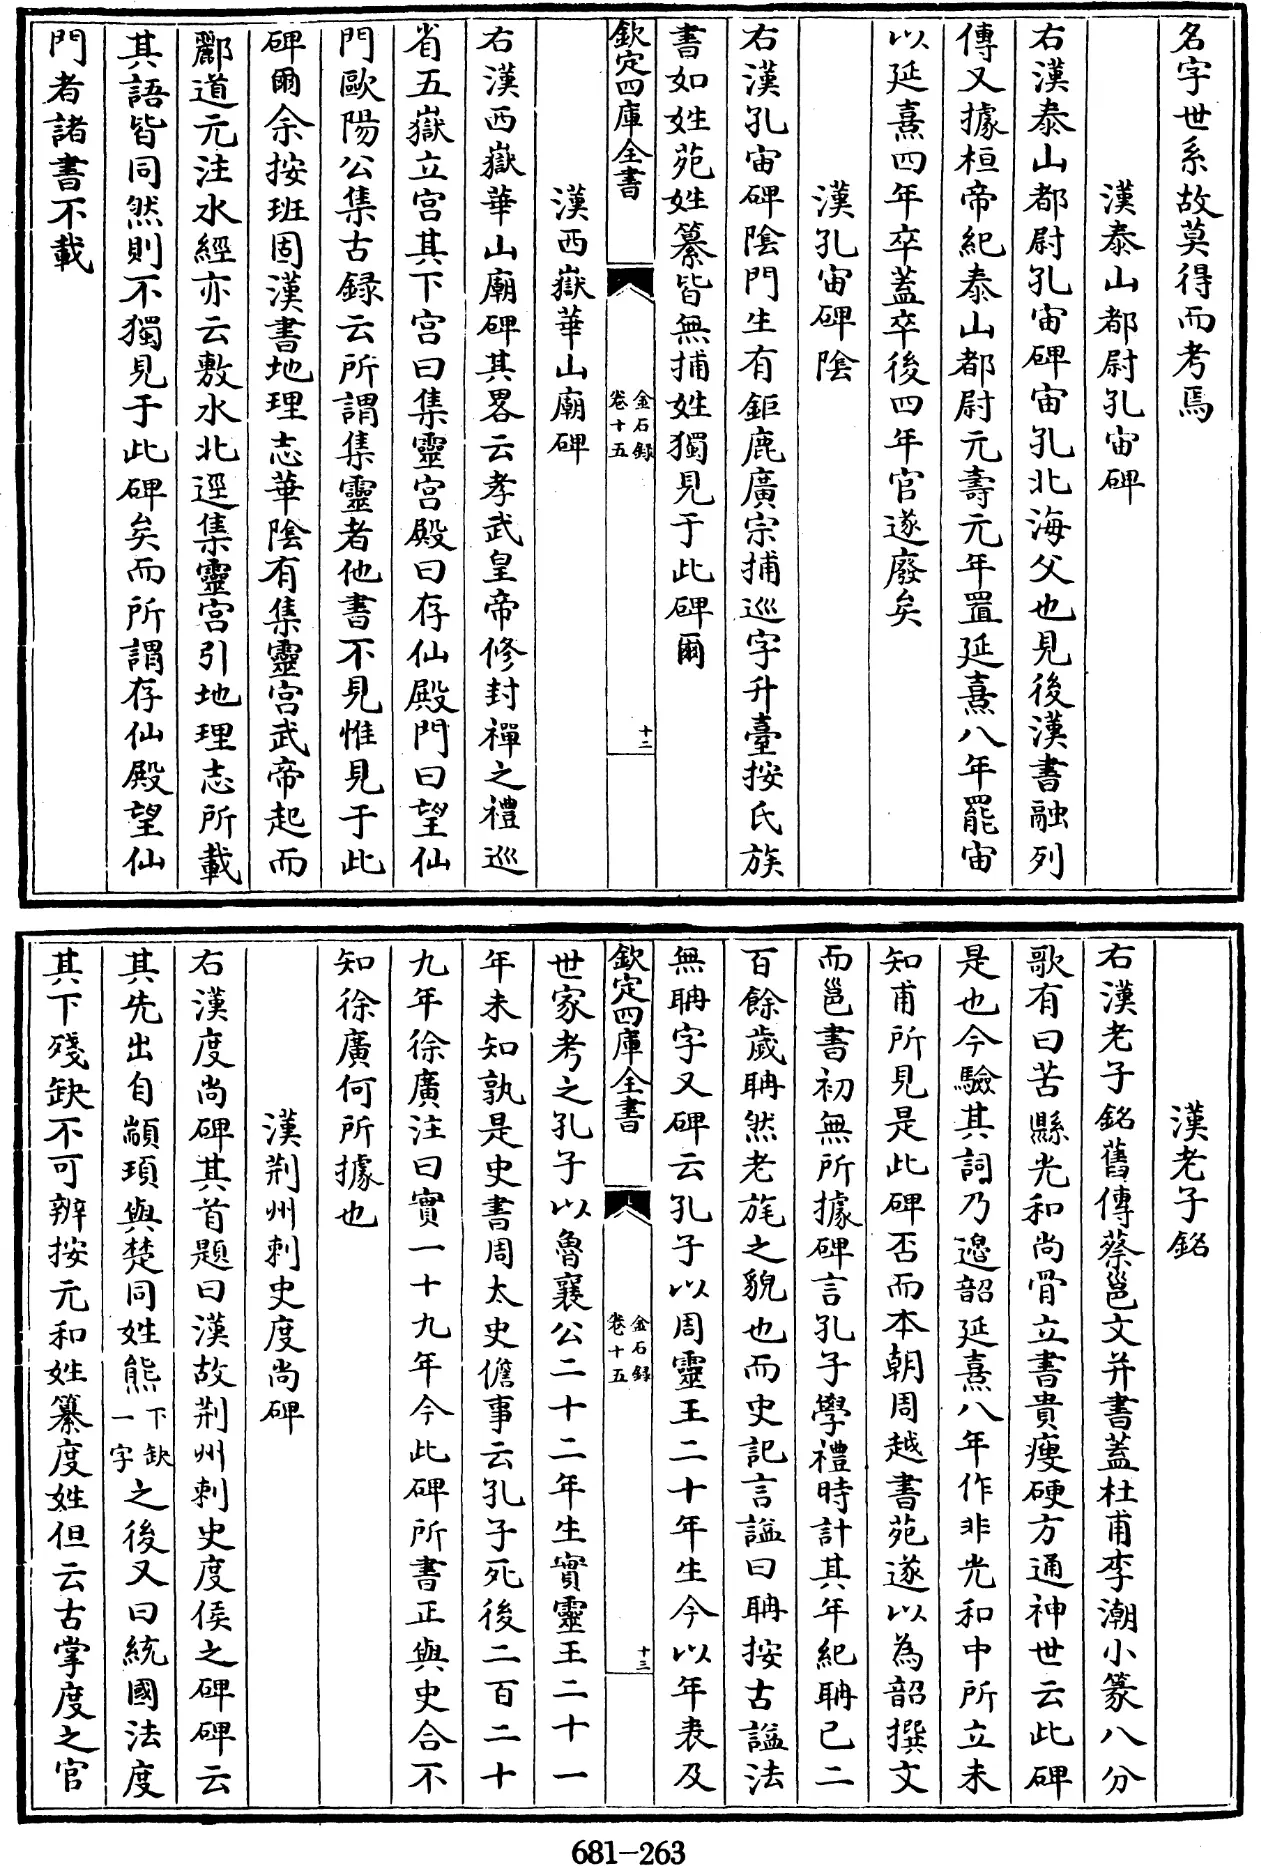 名字世系故莫得而考焉
漢泰山都尉孔宙碑
右漢泰山都尉孔宙碑宙孔北海父也見後漢書融列
傳又據桓帝紀泰山都尉元壽元年置延熹八年罷宙
以延熹四年卒蓋卒後四年官遂廢矣
漢孔宙碑陰
右漢孔宙碑陰門生有鉅鹿廣宗捕巡字升臺按氏族
書如姓苑姓纂皆無捕姓獨見于此碑爾
欽定四庫全書
金石録
卷十五
十二
漢西嶽華山廟碑
右漢西嶽華山廟碑其畧云孝武皇帝修封禪之禮巡
省五嶽立宮其下宮曰集靈宮殿曰存仙殿門曰望仙
門歐陽公集古録云所謂集靈者他書不見惟見于此
碑爾余按班固漢書地理志華陰有集靈宮武帝起而
酈道元注水經亦云敷水北逕集靈宮引地理志所載
其語皆同然則不獨見于此碑矣而所謂存仙殿望仙
門者諸書不載
漢老子銘
右漢老子銘舊傳蔡邕文并書蓋杜甫李潮小篆八分
歌有曰苦縣光和尚骨立書貴瘦硬方通神世云此碑
是也今驗其詞乃邊韶延熹八年作非光和中所立未
知甫所見是此碑否而本朝周越書苑遂以為韶撰文
而邕書初無所據碑言孔子學禮時計其年紀聃已二
百餘歲聃然老旄之貌也而史記言諡曰聃按古諡法
無聃字又碑云孔子以周靈王二十年生今以年表及
欽定四庫全書
金石録
卷十五
十三
世家考之孔子以魯襄公二十二年生實靈王二十一
年未知孰是史書周太史儋事云孔子死後二百二十
九年徐廣注曰實一十九年今此碑所書正與史合不
知徐廣何所據也
漢荆州刺史度尚碑
右漢度尚碑其首題曰漢故荆州刺史度侯之碑碑云
其先出自顓頊與楚同姓熊下缺一字之後又曰統國法度
其下殘缺不可辨按元和姓纂度姓但云古掌度之官
681-263